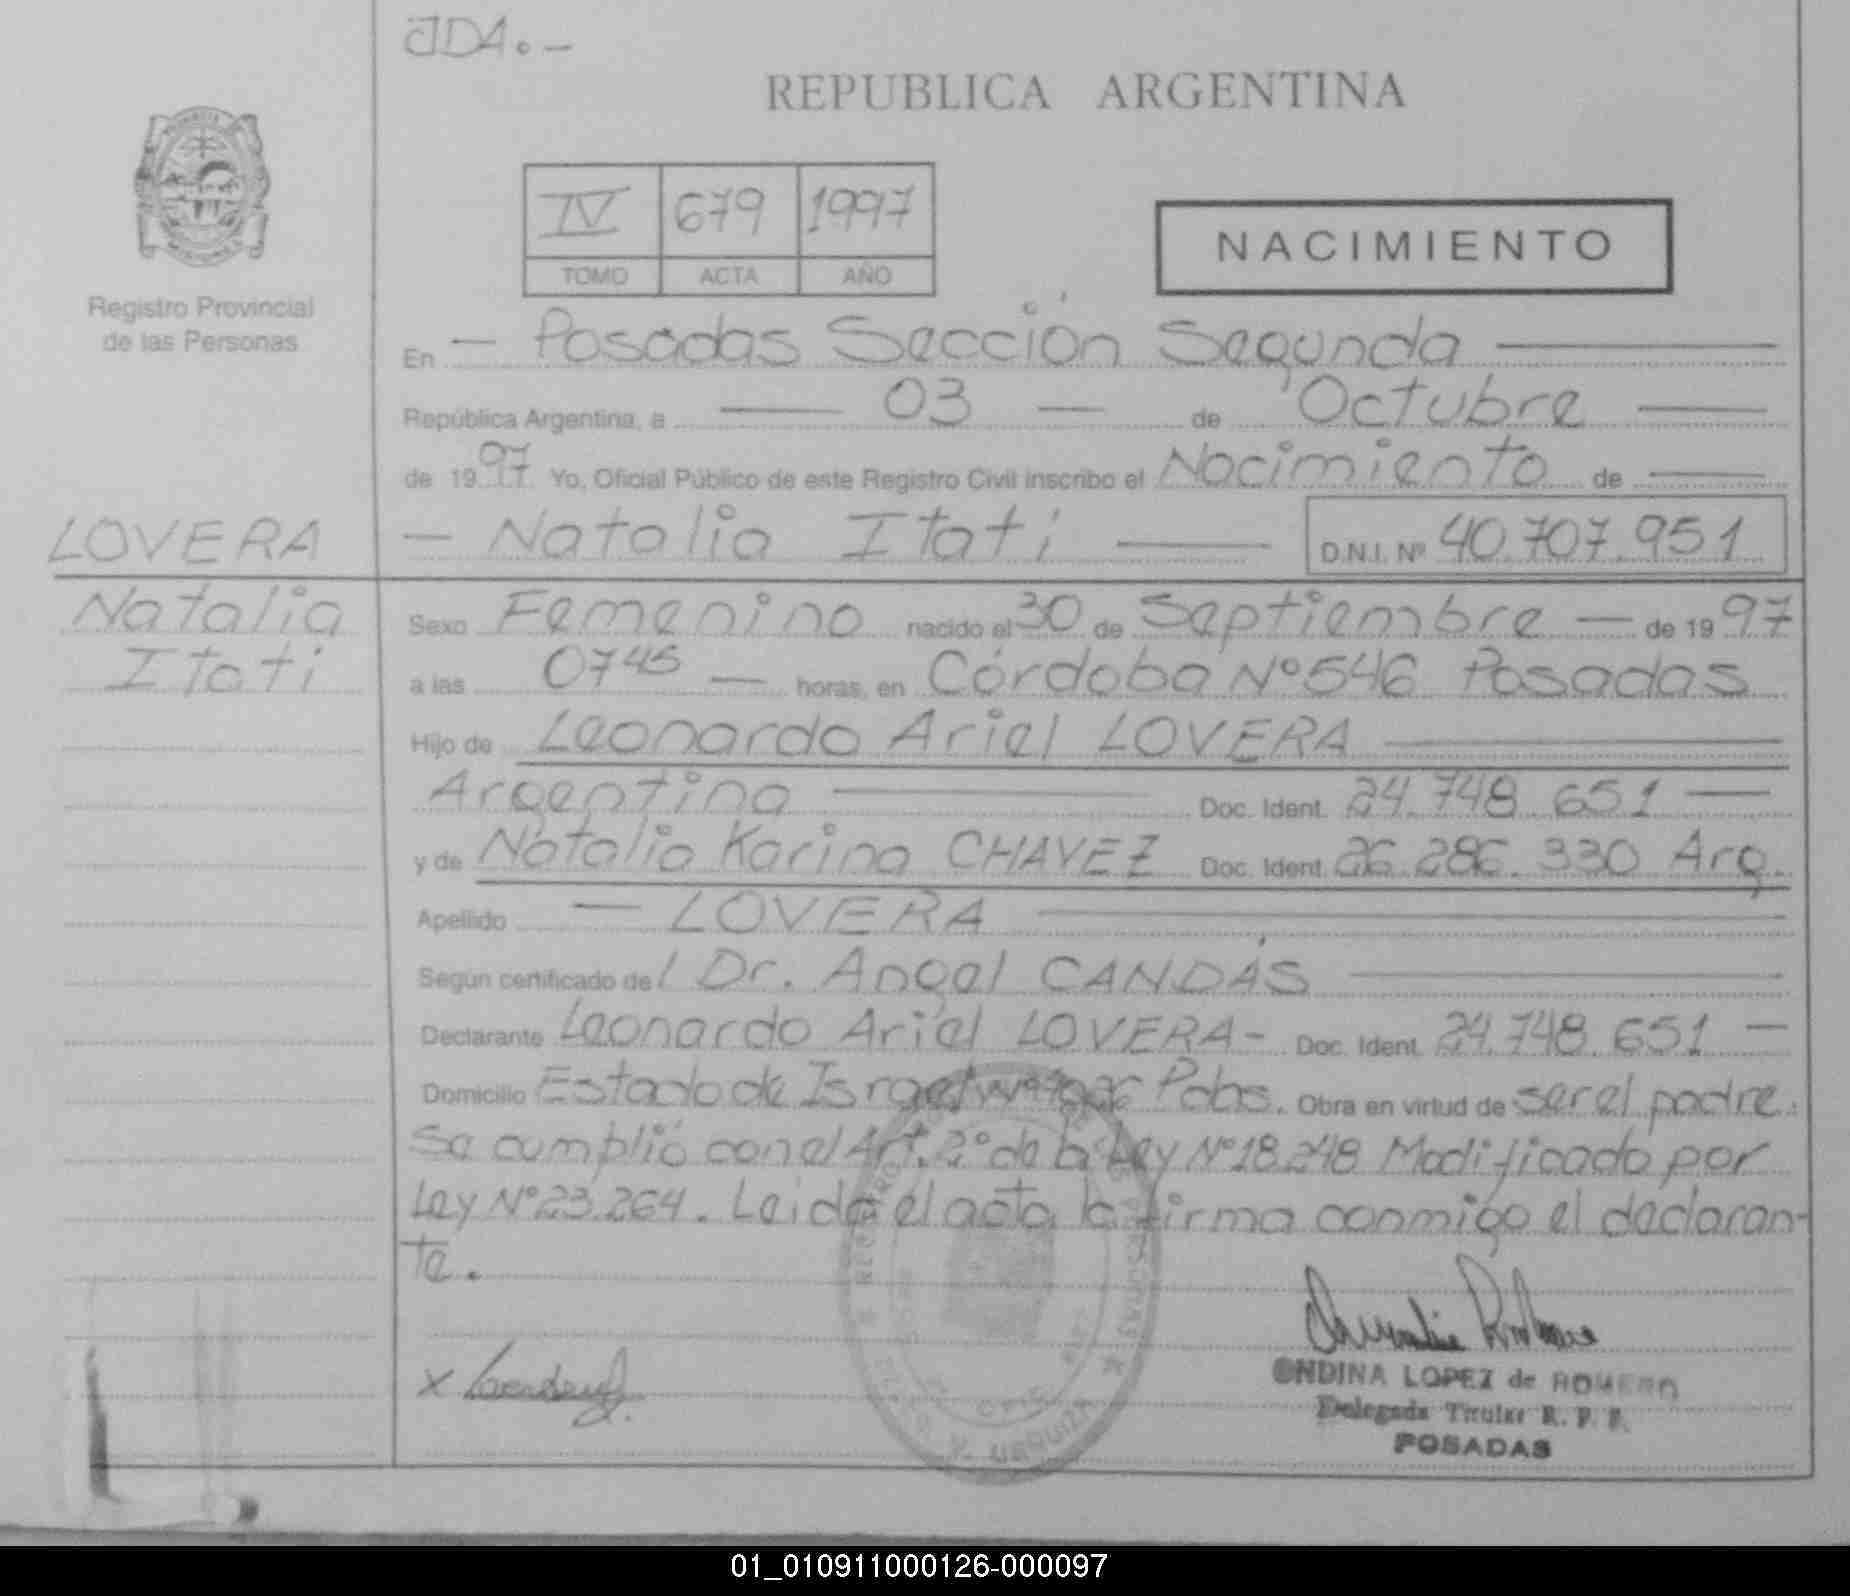 JDA.-
REPUBLICA ARGENTINA
IV 679 1997
TOMO ACTA AÑO
NACIMIENTO
Registro Provincial
de las Personas
En — Posadas Sección Segunda —
República Argentina, a — 03 — de Octubre —
de 1997 Yo, Oficial Público de este Registro Civil inscribo el Nacimiento de —
— Natalia Itati — D.N.I. Nº 40.707.951
LOVERA
Natalia
Itati
Sexo Femenino nacido el 30 de Septiembre — de 1997
a las 0745 — horas, en Córdoba Nº 546 Posadas
Hijo de Leonardo Ariel LOVERA —
Argentina — Doc. Ident. 24.748.651 —
y de Natalia Karina CHAVEZ Doc. Ident. 26.286.330 Arg.
Apellido — LOVERA —
Según certificado del Dr. Angel CANDÁS —
Declarante Leonardo Ariel LOVERA - Doc. Ident. 24.748.651 —
Domicilio Estado de Israel Pdas. Obra en virtud de ser el padre.
Se cumplió con el Art. 2° de la Ley Nº 18.248 Modificado por
Ley Nº 23.264. Leida el acta la firma conmigo el declaran-
te.
x
ONDINA LOPEZ de ROMERO
Delegada Titular R. P. P.
POSADAS
REGISTRO PERSONAS
URQUIZA
01_010911000126-000097